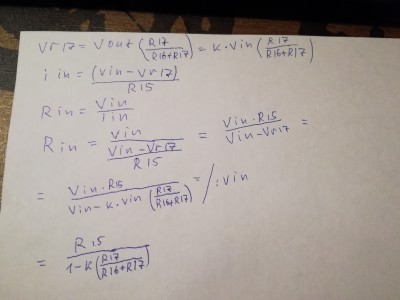 Vr17 = Vout (R17/(R16+R17)) = K·Vin (R17/(R16+R17))
i in = (Vin-Vr17)/R15
Rin = Vin/Iin
Rin = Vin/((Vin-Vr17)/R15) = (Vin·R15)/(Vin-Vr17) =
= (Vin·R15)/(Vin-K·Vin (R17/(R16+R17))) = /:Vin
= R15/(1-K(R17/(R16+R17)))